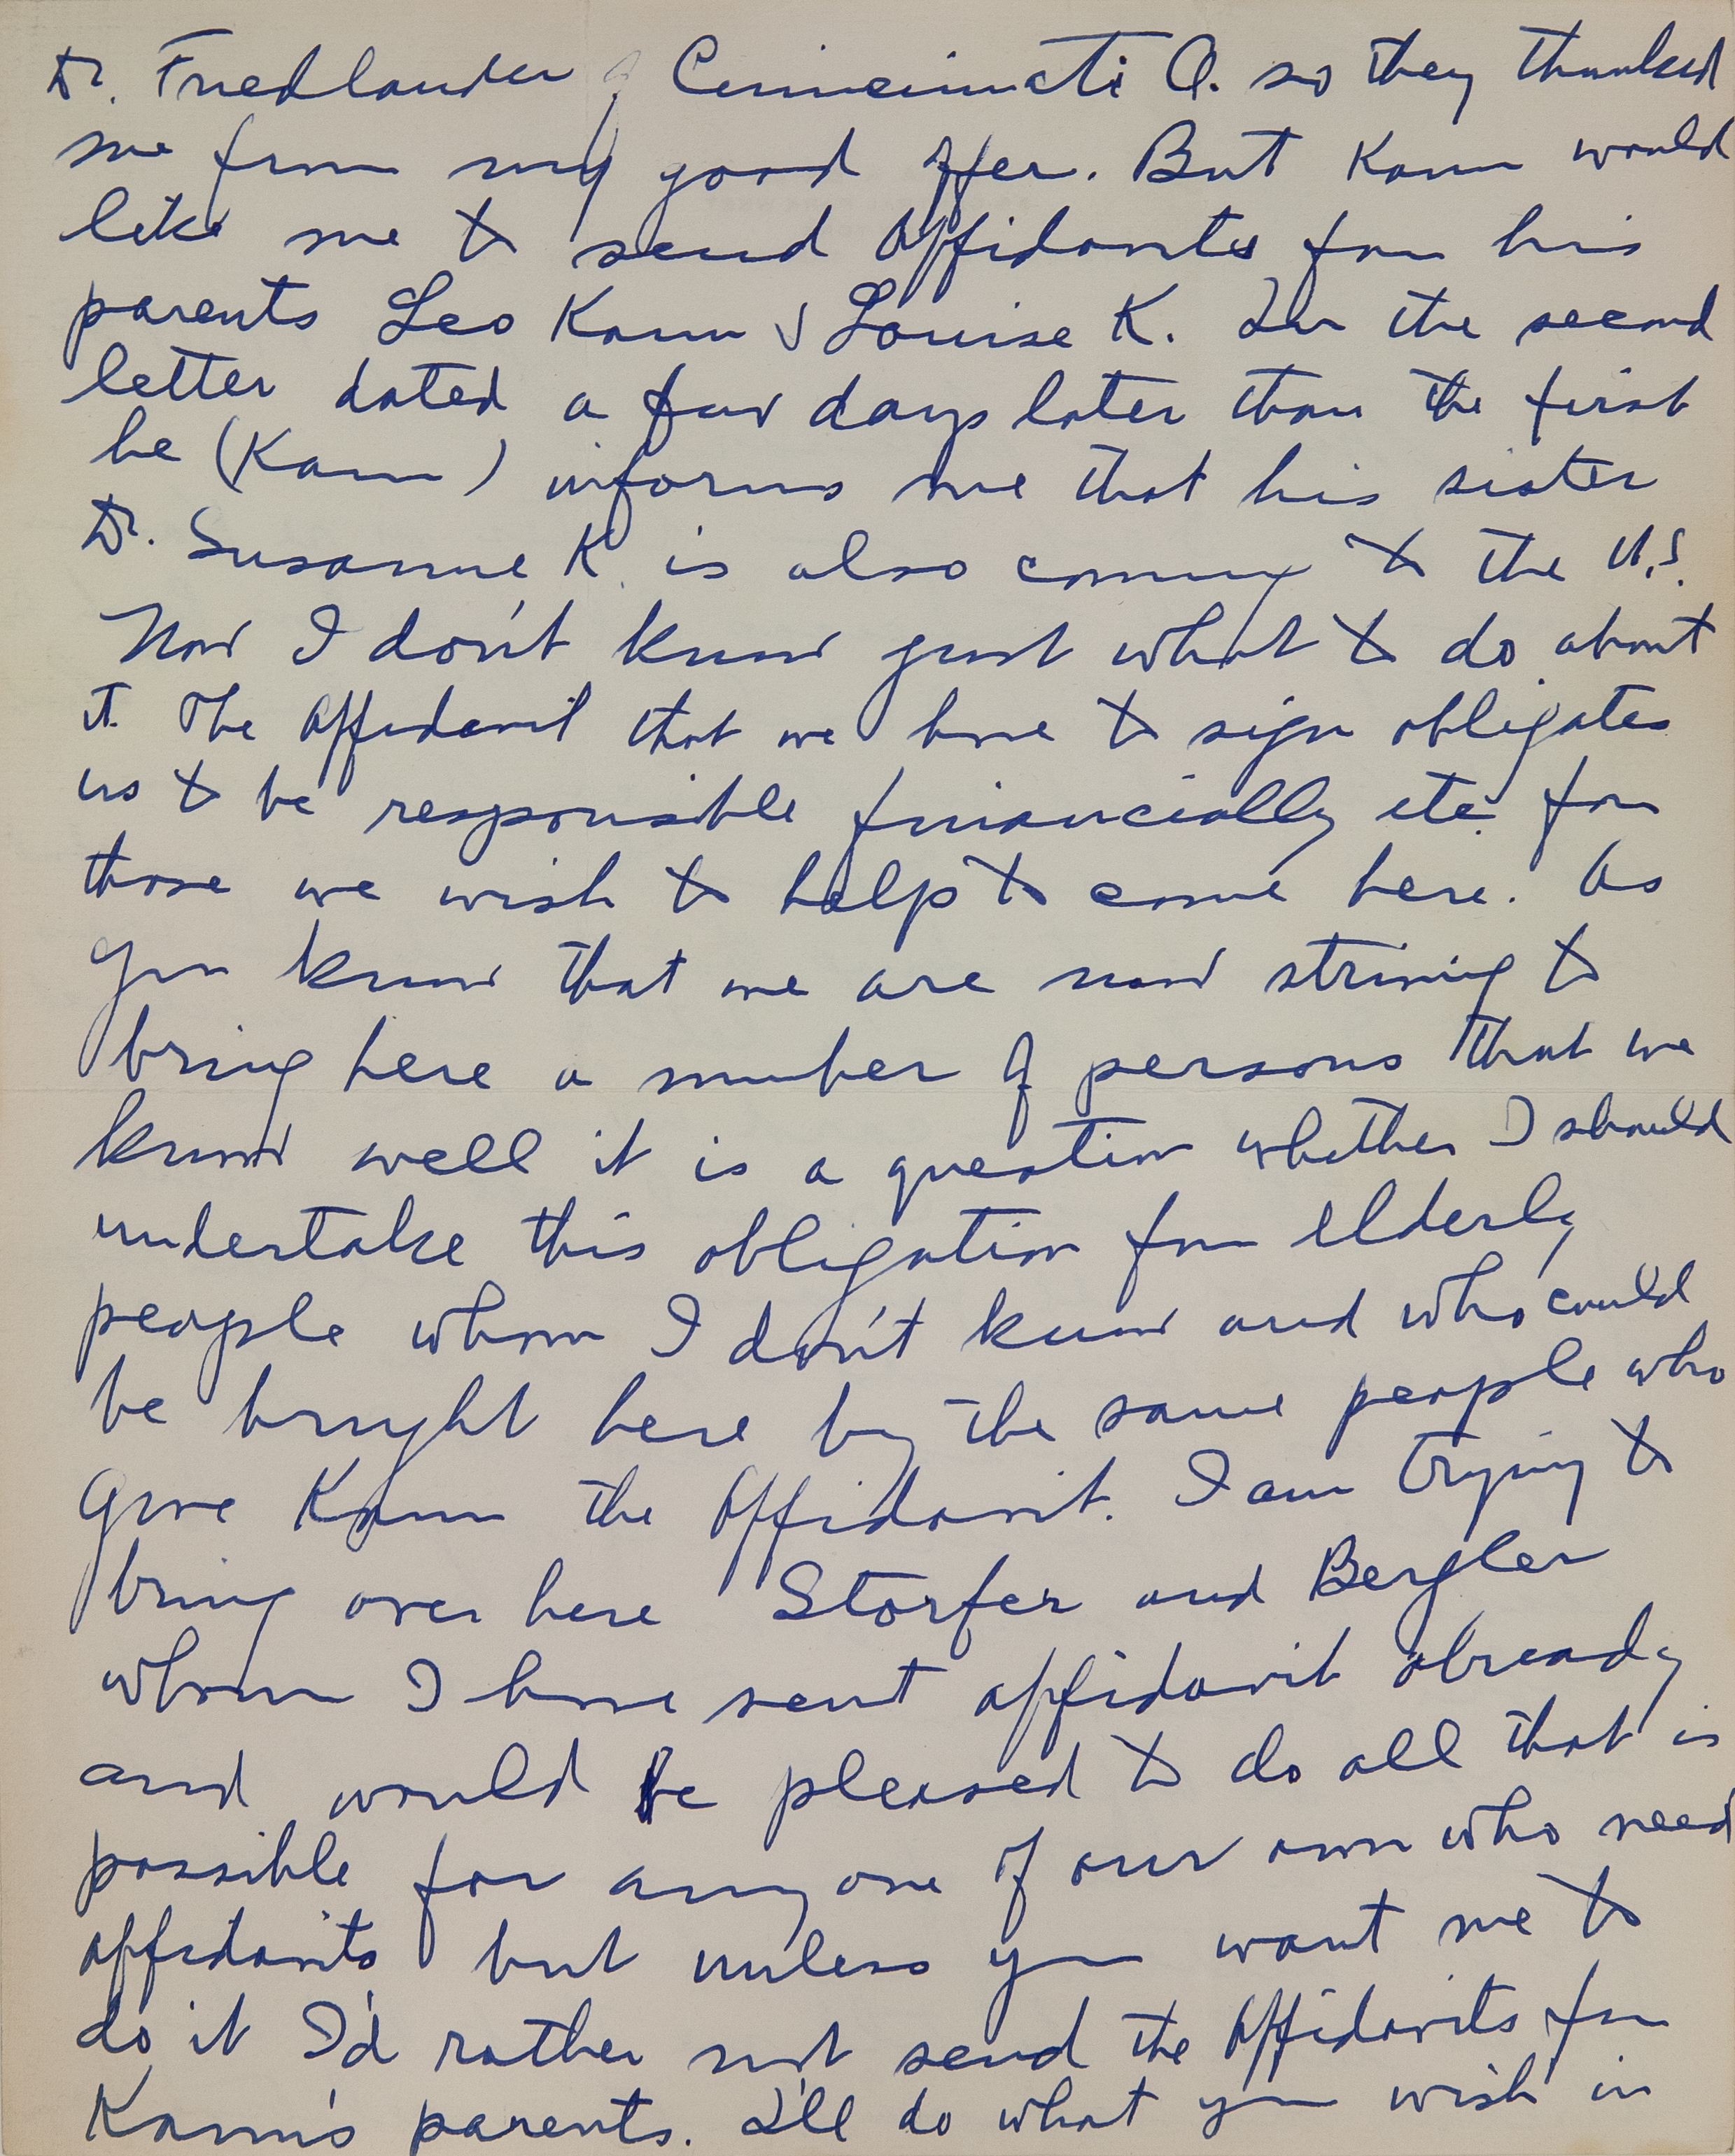 Dr. Friedlander of Cinncinnati O. so they thanked
me from my good offer. But Kann would
like me to send Affidavits for his
parents Leo Kann & Louise K. In the second
letter dated a few days later than the first
he (Kann) informs me that his sister
Dr. Susanne K. is also coming to the U.S.
Now I don't know just what to do about
it. The Affidavit that we have to sign obligates
us to be responsible financially etc. for
those we wish to help to come here. As
you know that we are now striving to
bring here a number of persons that we
know well it is a question whether I should
undertake this obligation for elderly
people whom I don't know and who could
be brought here by the same people who
gave Kann the Affidavit. I am trying to
bring over here Storfer and Bergler
whom I have sent affidavit already
and would be pleased to do all that is
possible for anyone of our own who need
affidavits but unless you want me to
do it I'd rather not send the Affidavits for
Kann's parents. I'll do what you wish in